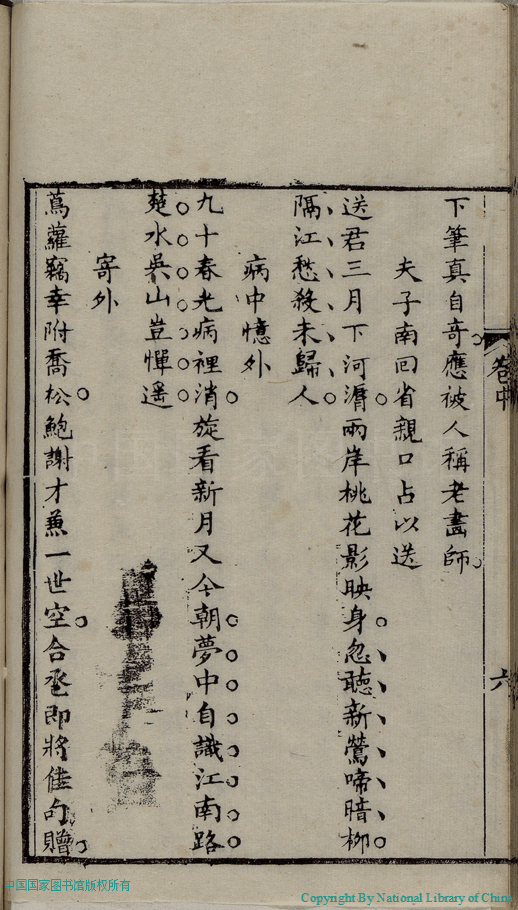 卷中
六
下筆真自奇應被人稱老畫師
夫子南回省親口占以送
送君三月下河濆兩岸桃花影映身忽聽新鶯啼暗柳
隔江愁殺未歸人
病中憶外
九十春光病裡消旋看新月又今朝夢中自識江南路
楚水吳山豈憚遥
寄外
蔦蘿竊幸附喬松鮑謝才兼一世空合巹即將佳句贈
中国国家图书馆版权所有
Copyright By National Library of China